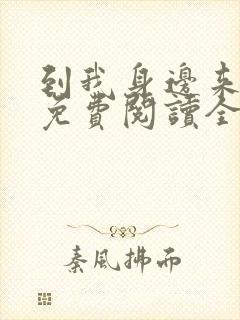 到我身邊來
免費閱讀全
秦風拂而